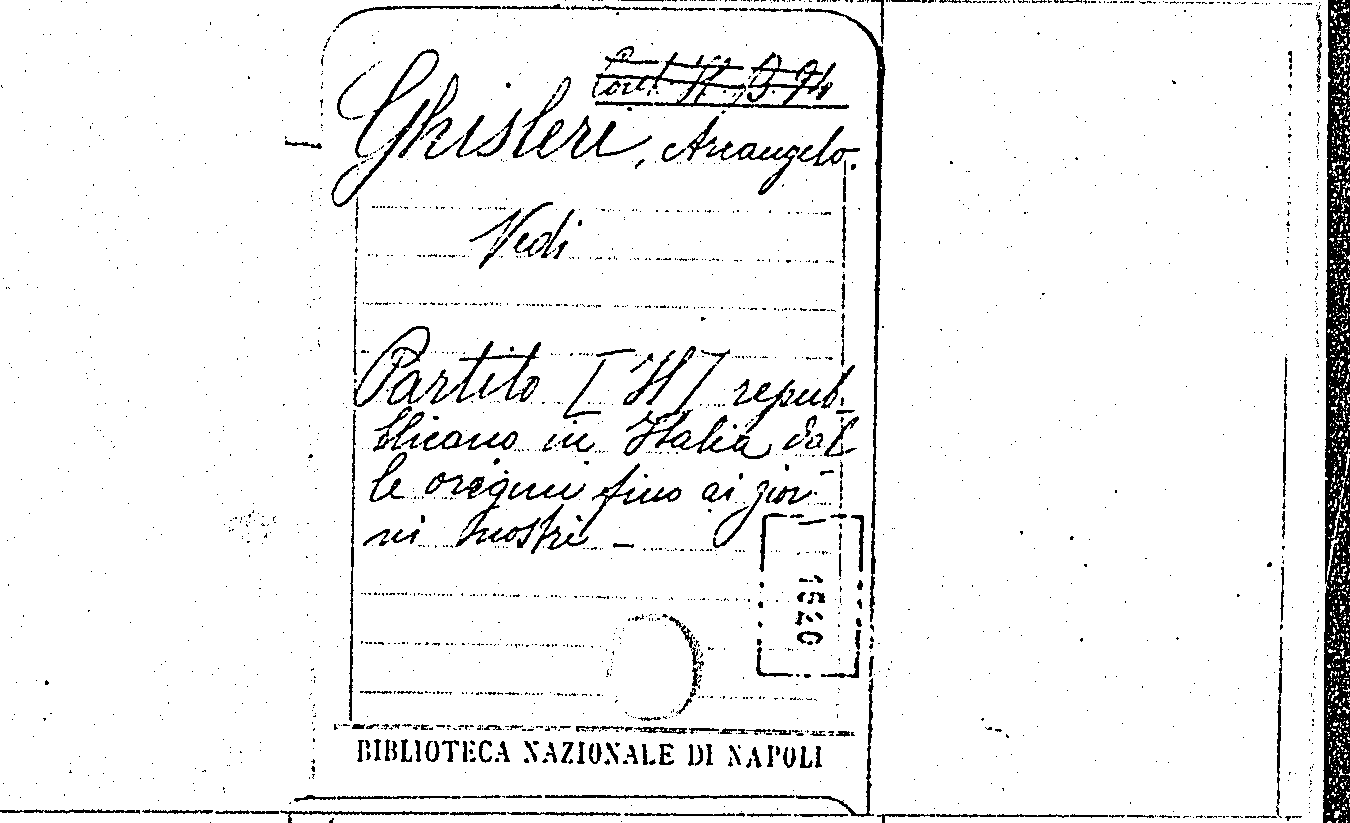 Cont. H. B. 94
Ghisleri, Arcangelo.
Vedi
Partito [Il] repub-
blicano in Italia dal-
le origini fino ai gior-
ni nostri –
BIBLIOTECA NAZIONALE DI NAPOLI